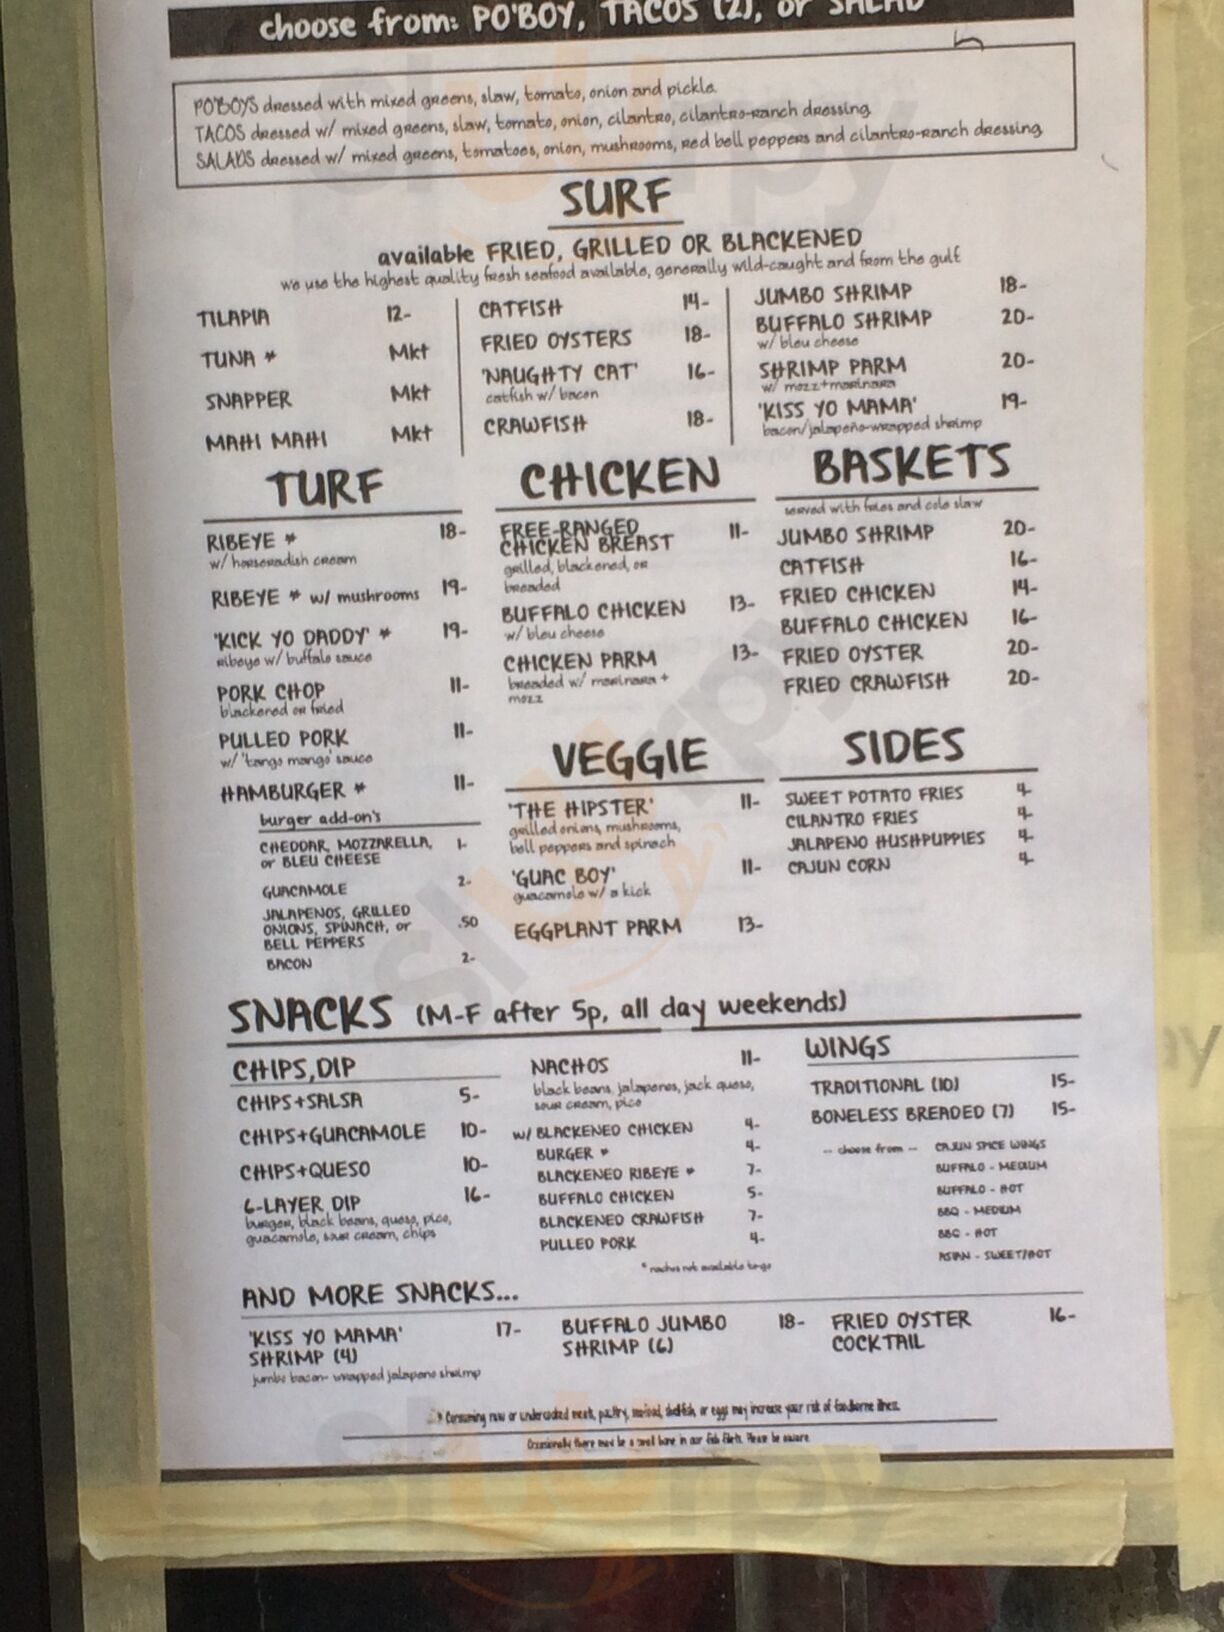 choose from: PO'BOY, TACOS (2), or SALAD
PO'BOYS dressed with mixed greens, slaw, tomato, onion and pickle.
TACOS dressed w/ mixed greens, slaw, tomato, onion, cilantro, cilantro-ranch dressing
SALADS dressed w/ mixed greens, tomatoes, onion, mushrooms, red bell peppers and cilantro-ranch dressing
SURF
available FRIED, GRILLED OR BLACKENED
we use the highest quality fresh seafood available, generally wild-caught and from the gulf
TILAPIA 12-
TUNA * Mkt
SNAPPER Mkt
MAHI MAHI Mkt
CATFISH 14-
FRIED OYSTERS 18-
'NAUGHTY CAT' 16-
catfish w/ bacon
CRAWFISH 18-
JUMBO SHRIMP 18-
BUFFALO SHRIMP 20-
w/ bleu cheese
SHRIMP PARM 20-
w/ mozz+marinara
'KISS YO MAMA' 19-
bacon/jalapeño-wrapped shrimp
TURF
RIBEYE * 18-
w/ horseradish cream
RIBEYE * w/ mushrooms 19-
'KICK YO DADDY' * 19-
ribeye w/ buffalo sauce
PORK CHOP 11-
blackened or fried
PULLED PORK 11-
w/ 'tango mango' sauce
HAMBURGER * 11-
burger add-on's
CHEDDAR, MOZZARELLA, 1-
or BLEU CHEESE
GUACAMOLE 2-
JALAPENOS, GRILLED
ONIONS, SPINACH, or .50
BELL PEPPERS
BACON 2-
CHICKEN
FREE-RANGED 11-
CHICKEN BREAST
grilled, blackened, or
breaded
BUFFALO CHICKEN 13-
w/ bleu cheese
CHICKEN PARM 13-
breaded w/ marinara +
mozz
BASKETS
served with fries and cole slaw
JUMBO SHRIMP 20-
CATFISH 16-
FRIED CHICKEN 14-
BUFFALO CHICKEN 16-
FRIED OYSTER 20-
FRIED CRAWFISH 20-
VEGGIE
'THE HIPSTER' 11-
grilled onions, mushrooms,
bell peppers and spinach
'GUAC BOY' 11-
guacamole w/ a kick
EGGPLANT PARM 13-
SIDES
SWEET POTATO FRIES 4-
CILANTRO FRIES 4-
JALAPENO HUSHPUPPIES 4-
CAJUN CORN 4-
SNACKS (M-F after 5p, all day weekends)
CHIPS, DIP
CHIPS+SALSA 5-
CHIPS+GUACAMOLE 10-
CHIPS+QUESO 10-
6-LAYER DIP 16-
burger, black beans, queso, pico,
guacamole, sour cream, chips
NACHOS 11-
black beans, jalapenos, jack queso,
sour cream, pico
w/ BLACKENED CHICKEN 4-
BURGER * 4-
BLACKENED RIBEYE * 7-
BUFFALO CHICKEN 5-
BLACKENED CRAWFISH 7-
PULLED PORK 4-
* nachos not available to-go
WINGS
TRADITIONAL (10) 15-
BONELESS BREADED (7) 15-
-- choose from -- CAJUN SPICE WINGS
BUFFALO - MEDIUM
BUFFALO - HOT
BBQ - MEDIUM
BBQ - HOT
ASIAN - SWEET/HOT
AND MORE SNACKS...
'KISS YO MAMA' 17-
SHRIMP (4)
jumbo bacon-wrapped jalapeno shrimp
BUFFALO JUMBO 18-
SHRIMP (6)
FRIED OYSTER 16-
COCKTAIL
* Consuming raw or undercooked meats, poultry, seafood, shellfish, or eggs may increase your risk of foodborne illness.
Occasionally there may be a small bone in our fish filets. Please be aware.
slurpy
slurpy
slurpy